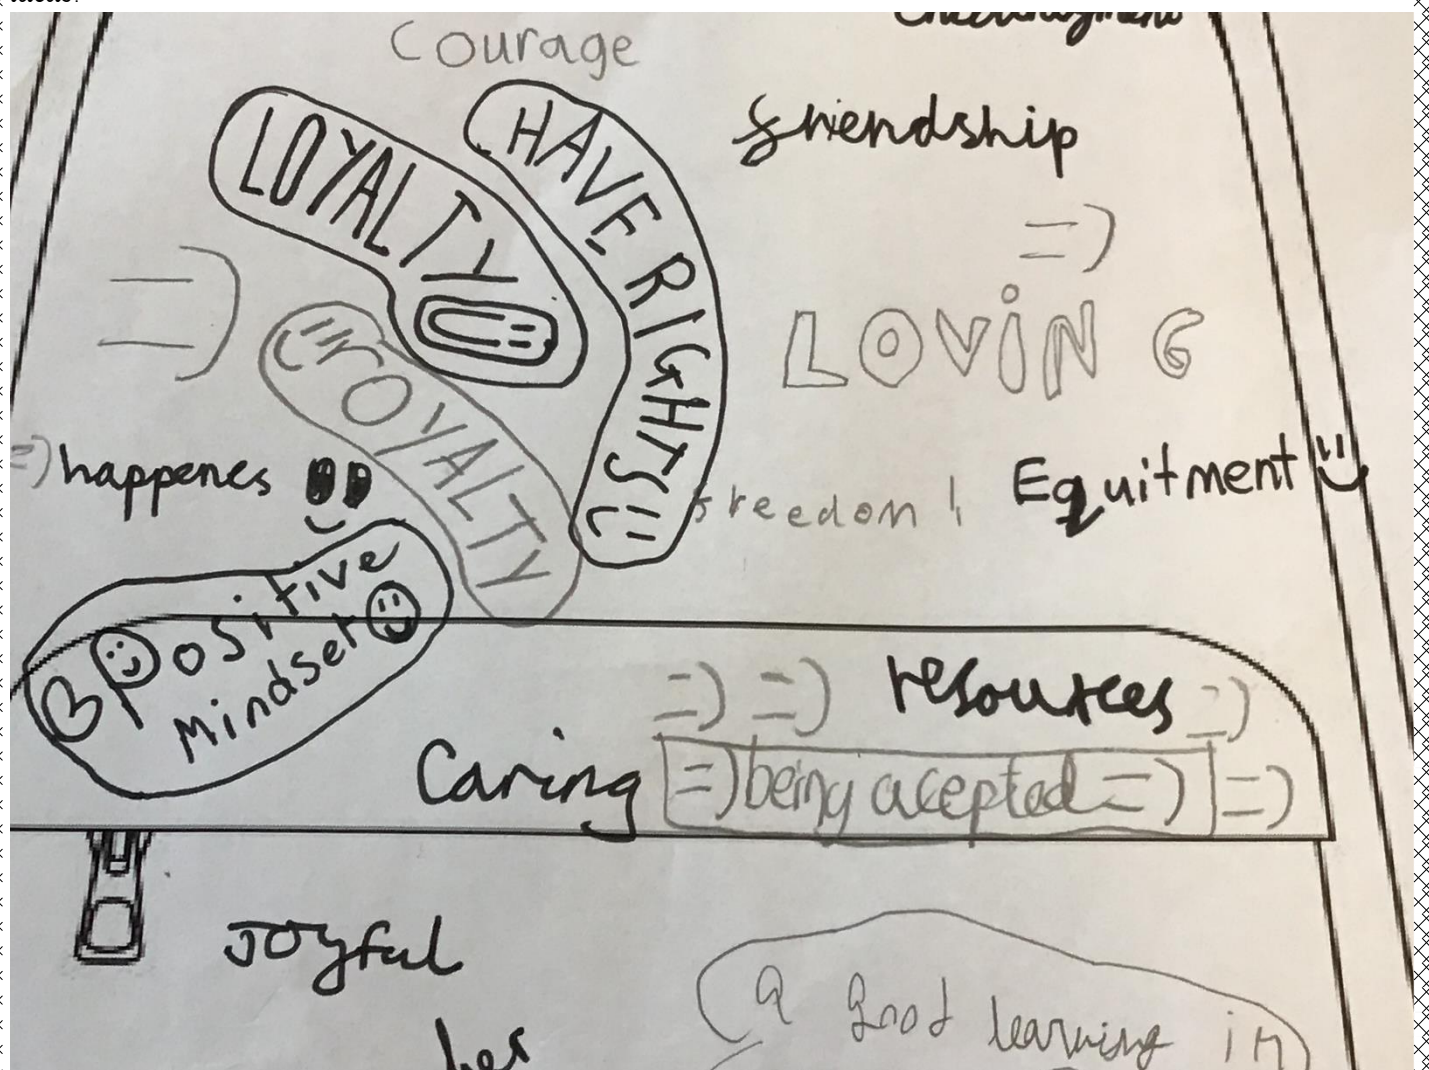 Courage
friendship
LOYALTY
HAVE RIGHTS!!
=)
=)
LOVING
ROYALTY
=) happenes
freedom !
Equitment
Positive
Mindset
=) =) resources =)
Caring =) being acepted =) =)
JOYful
a good learning in